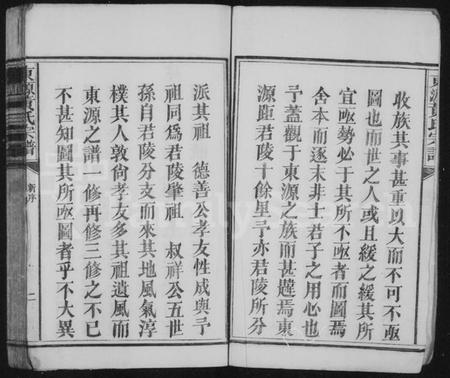 收族其事甚重以大而不可不亟
圖也而世之人或且緩之緩其所
宜亟勢必于其所不亟者而圖焉
舍本而逐末非士君子之用心也
予蓋觀于東源之族而甚韙焉東
源距君陵十餘里予亦君陵所分
東源黃氏宗譜
新序
二
派其祖 德善公孝友性成與予
祖同爲君陵肇祖 叔祥公五世
孫自君陵分支而來其地風氣淳
樸其人敦尚孝友多其祖遺風而
東源之譜一修再修三修之不已
不甚知圖其所亟圖者乎不大異